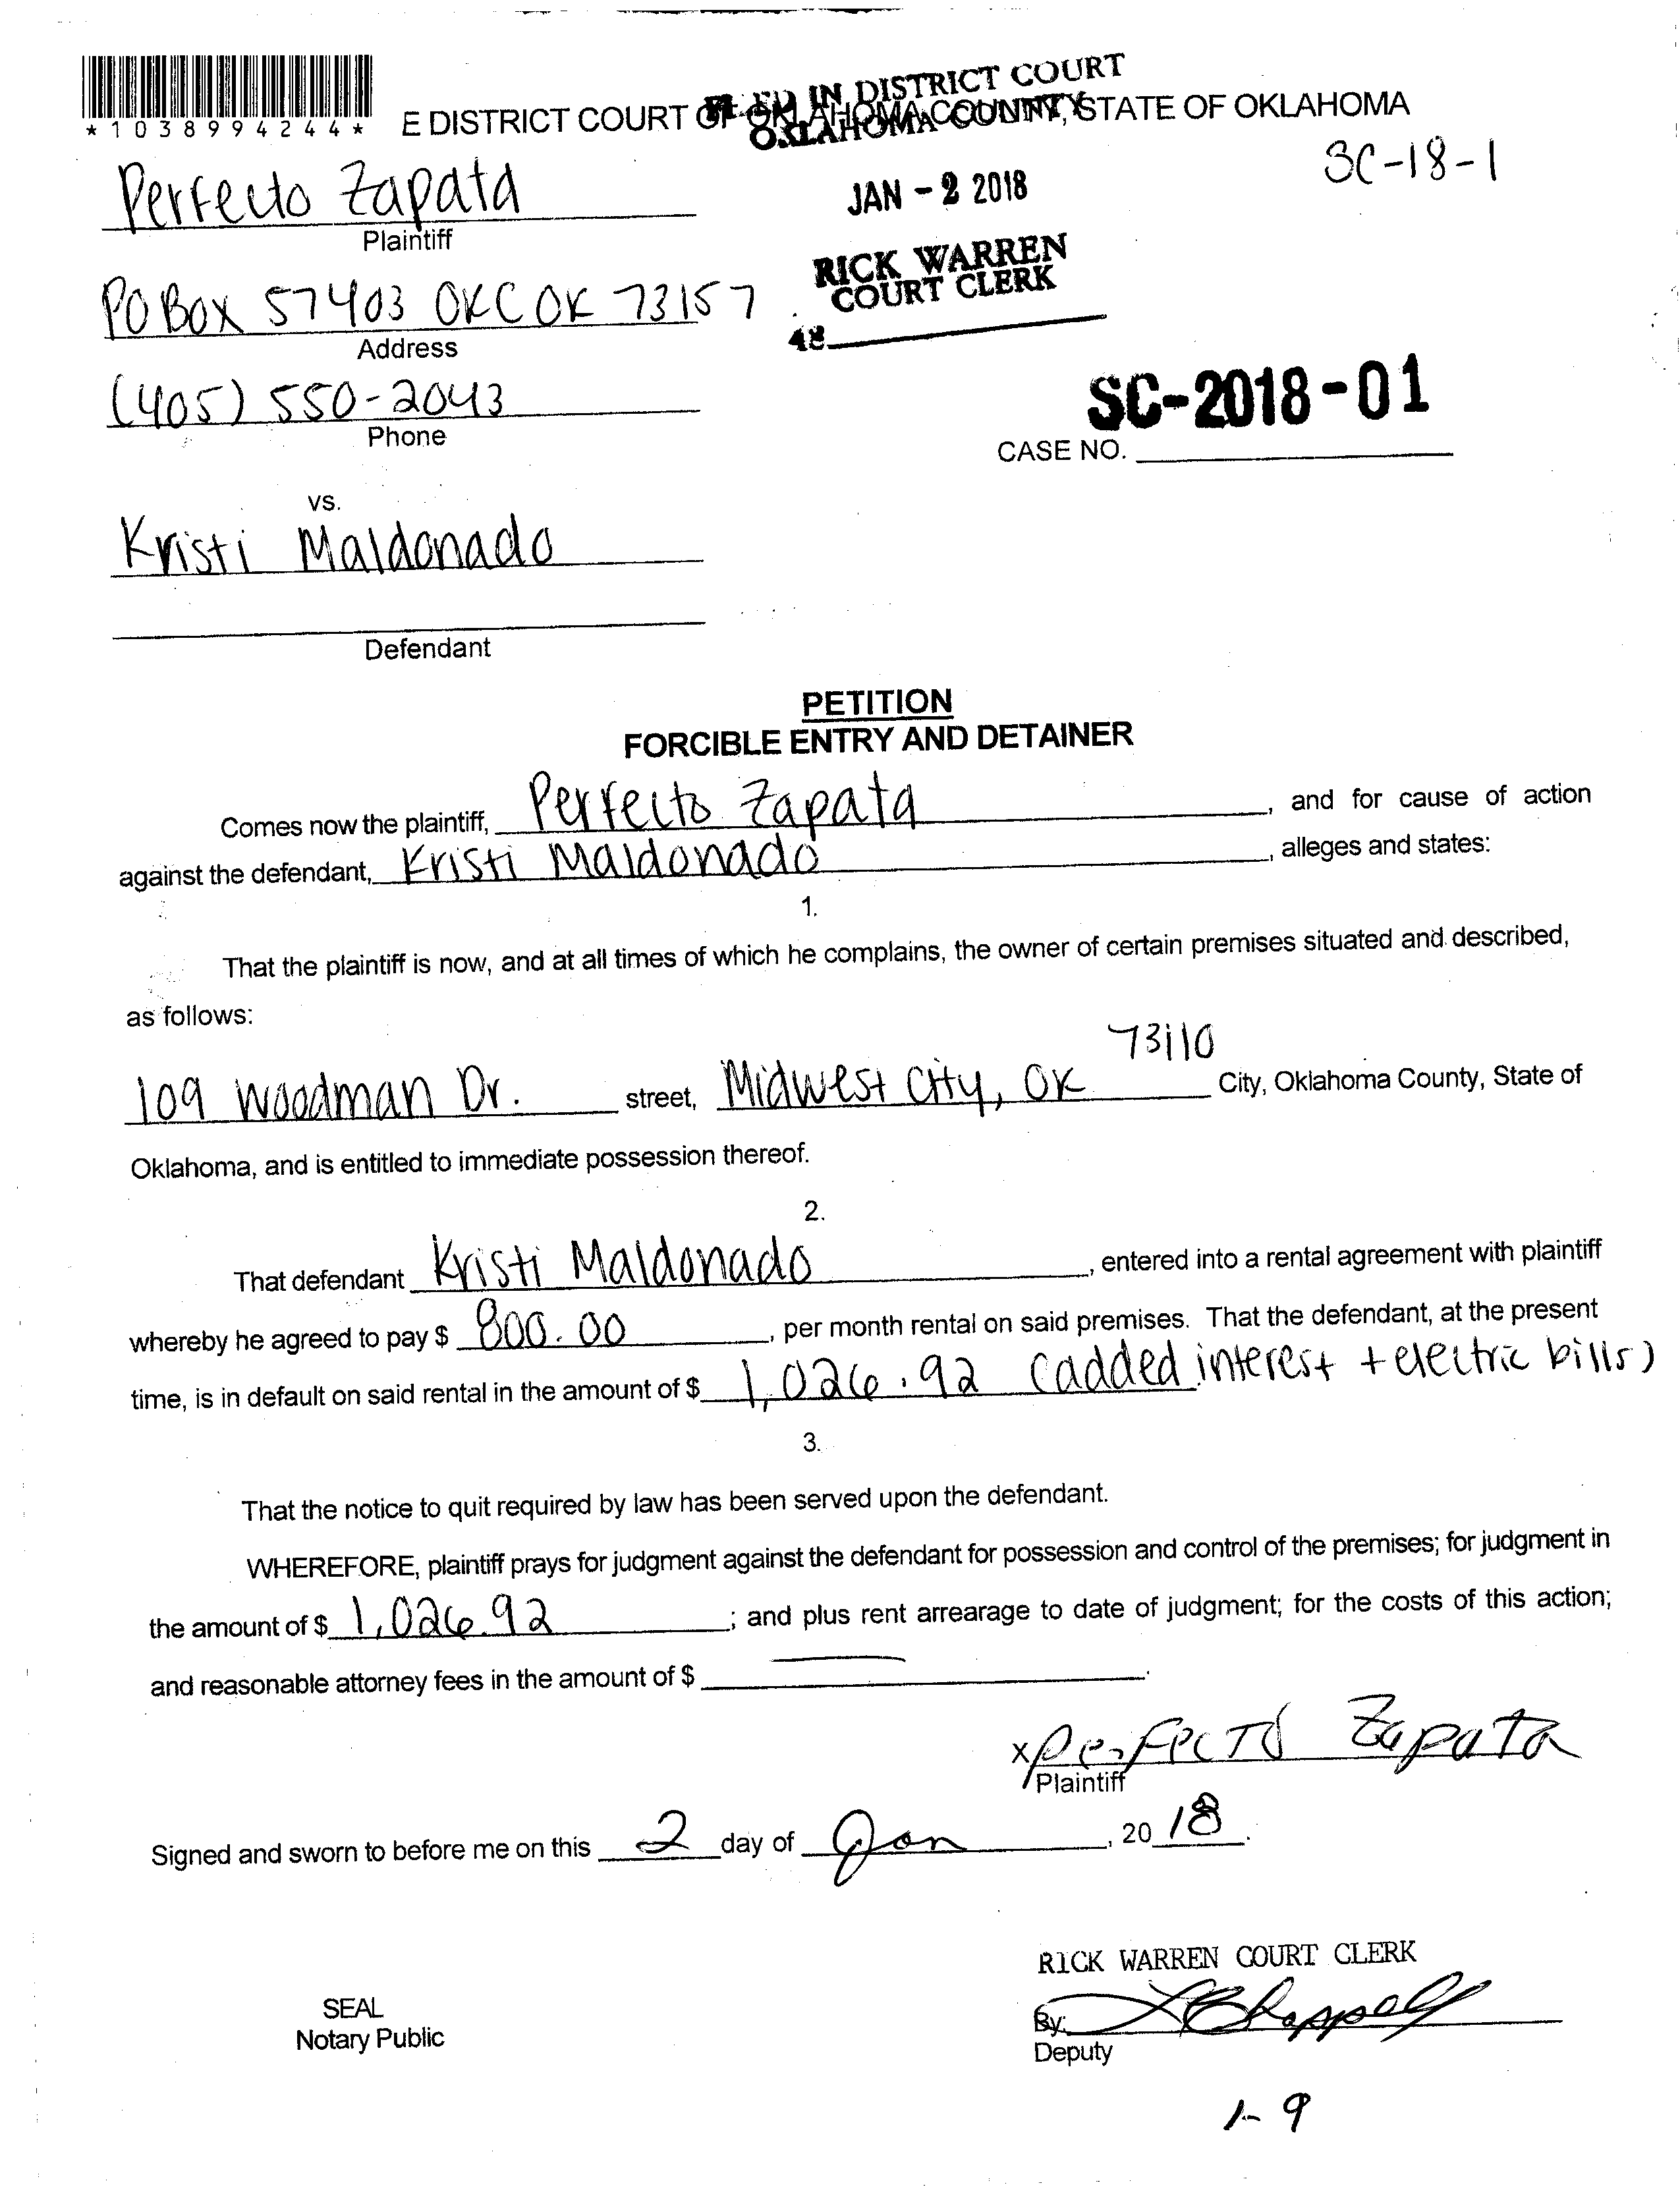 *1038994244*
E DISTRICT COURT OF OKLAHOMA COUNTY, STATE OF OKLAHOMA
FILED IN DISTRICT COURT
OKLAHOMA COUNTY
JAN - 2 2018
RICK WARREN
COURT CLERK
48
SC-18-1
Perfecto Zapata
Plaintiff
PO Box 57403 OKC OK 73157
Address
(405) 550-2043
Phone
SC-2018-01
CASE NO.
vs.
Kristi Maldonado
Defendant
PETITION
FORCIBLE ENTRY AND DETAINER
Comes now the plaintiff, Perfecto Zapata, and for cause of action
against the defendant, Kristi Maldonado, alleges and states:
1.
That the plaintiff is now, and at all times of which he complains, the owner of certain premises situated and described,
as follows:
73110
109 Woodman Dr. street, Midwest City, OK City, Oklahoma County, State of
Oklahoma, and is entitled to immediate possession thereof.
2.
That defendant Kristi Maldonado, entered into a rental agreement with plaintiff
whereby he agreed to pay $ 800.00, per month rental on said premises. That the defendant, at the present
time, is in default on said rental in the amount of $ 1,026.92 (added interest + electric bills)
3.
That the notice to quit required by law has been served upon the defendant.
WHEREFORE, plaintiff prays for judgment against the defendant for possession and control of the premises; for judgment in
the amount of $ 1,026.92; and plus rent arrearage to date of judgment; for the costs of this action;
and reasonable attorney fees in the amount of $ .
x Perfecto Zapata
Plaintiff
Signed and sworn to before me on this 2 day of Jan, 20 18.
RICK WARREN COURT CLERK
SEAL
Notary Public
By: Chappell
Deputy
1-9